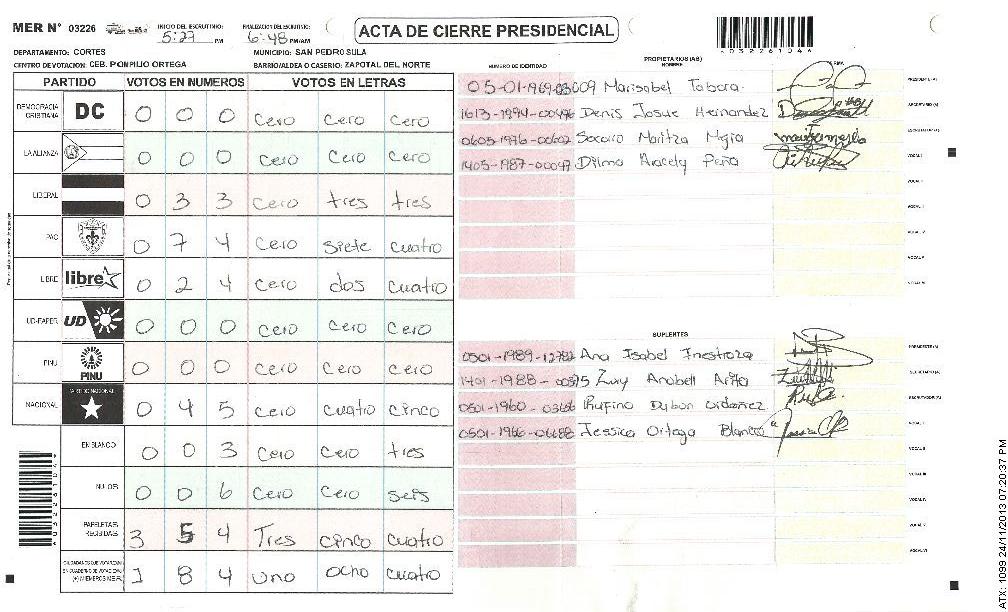 MER N° 03226
INICIO DEL ESCRUTINIO: 5:27 PM
FINALIZACION DEL ESCRUTINIO: 6:48 PM
ACTA DE CIERRE PRESIDENCIAL
DEPARTAMENTO: CORTES
MUNICIPIO: SAN PEDRO SULA
CENTRO DE VOTACION: CEB. PONPILIO ORTEGA
BARRIO/ALDEA O CASERIO: ZAPOTAL DEL NORTE
PARTIDO VOTOS EN NUMEROS VOTOS EN LETRAS
DEMOCRACIA CRISTIANA DC 0 0 0 cero cero cero
LA ALIANZA 0 0 0 cero cero cero
LIBERAL 0 3 3 cero tres tres
PAC 0 7 4 cero siete cuatro
LIBRE libre 0 2 4 cero dos cuatro
UD-FAPER UD 0 0 0 cero cero cero
PINU PINU 0 0 0 cero cero cero
NACIONAL PARTIDO NACIONAL 0 4 5 cero cuatro cinco
EN BLANCO 0 0 3 cero cero tres
NULOS 0 0 6 cero cero seis
PAPELETAS RECIBIDAS 3 5 4 Tres cinco cuatro
1 8 4 uno ocho cuatro
NUMERO DE IDENTIDAD
PROPIETARIOS(AS)
NOMBRE
FIRMA
Marisabel Tabora PRESIDENTE (A)
Denis Josue Hernandez SECRETARIO (A)
Socorro Maritza Mejia ESCRUTADOR (A)
1405-1987-00097 Dilma Aracely Peña VOCAL I
VOCAL II
VOCAL III
VOCAL IV
VOCAL V
VOCAL VI
SUPLENTES
Ana Isabel Inestroza PRESIDENTE (A)
Zury Anabell Arita SECRETARIO (A)
Rufino Dubon Ordoñez ESCRUTADOR (A)
0501-1966-06688 Jessica Ortega Blanco VOCAL I
VOCAL II
VOCAL III
VOCAL IV
VOCAL V
VOCAL VI
ATX: 1099 24/11/2013 07:20:37 PM